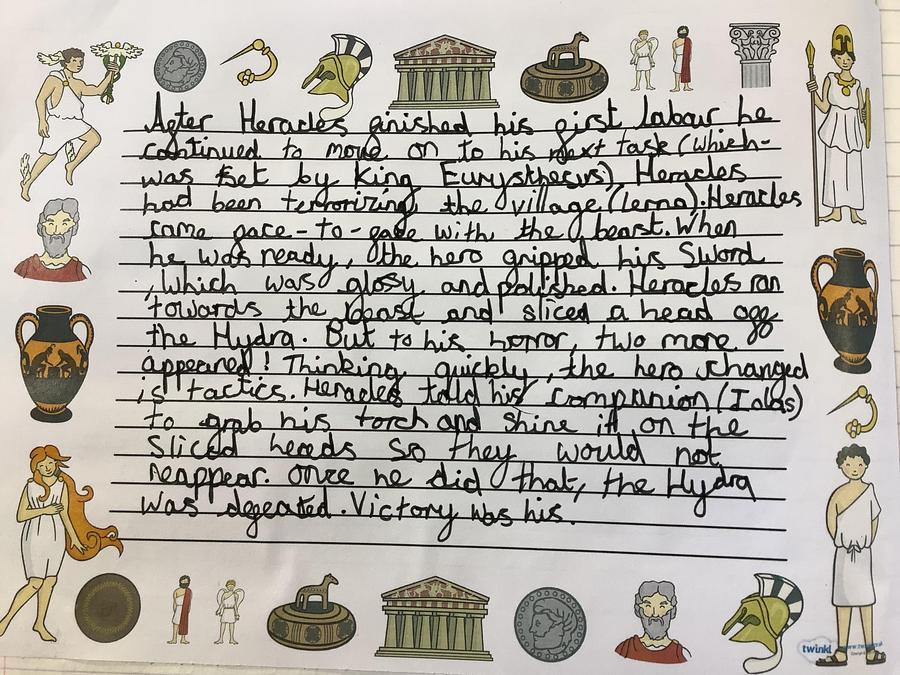 After Heracles finished his first labour he
continued to move on to his next task (which-
was set by King Eurysthesus) Heracles
had been terrorizing the village (lerna). Heracles
came face-to-face with the beast. When
he was ready, the hero gripped his Sword
, which was glossy and polished. Heracles ran
towards the beast and sliced a head off
the Hydra. But to his horror, two more
appeared! Thinking quickly, the hero changed
is tactics. Heracles told his companion (Iolas)
to grab his torch and shine it on the
sliced heads so they would not
reappear. Once he did that, the Hydra
was defeated. Victory was his.
twinkl